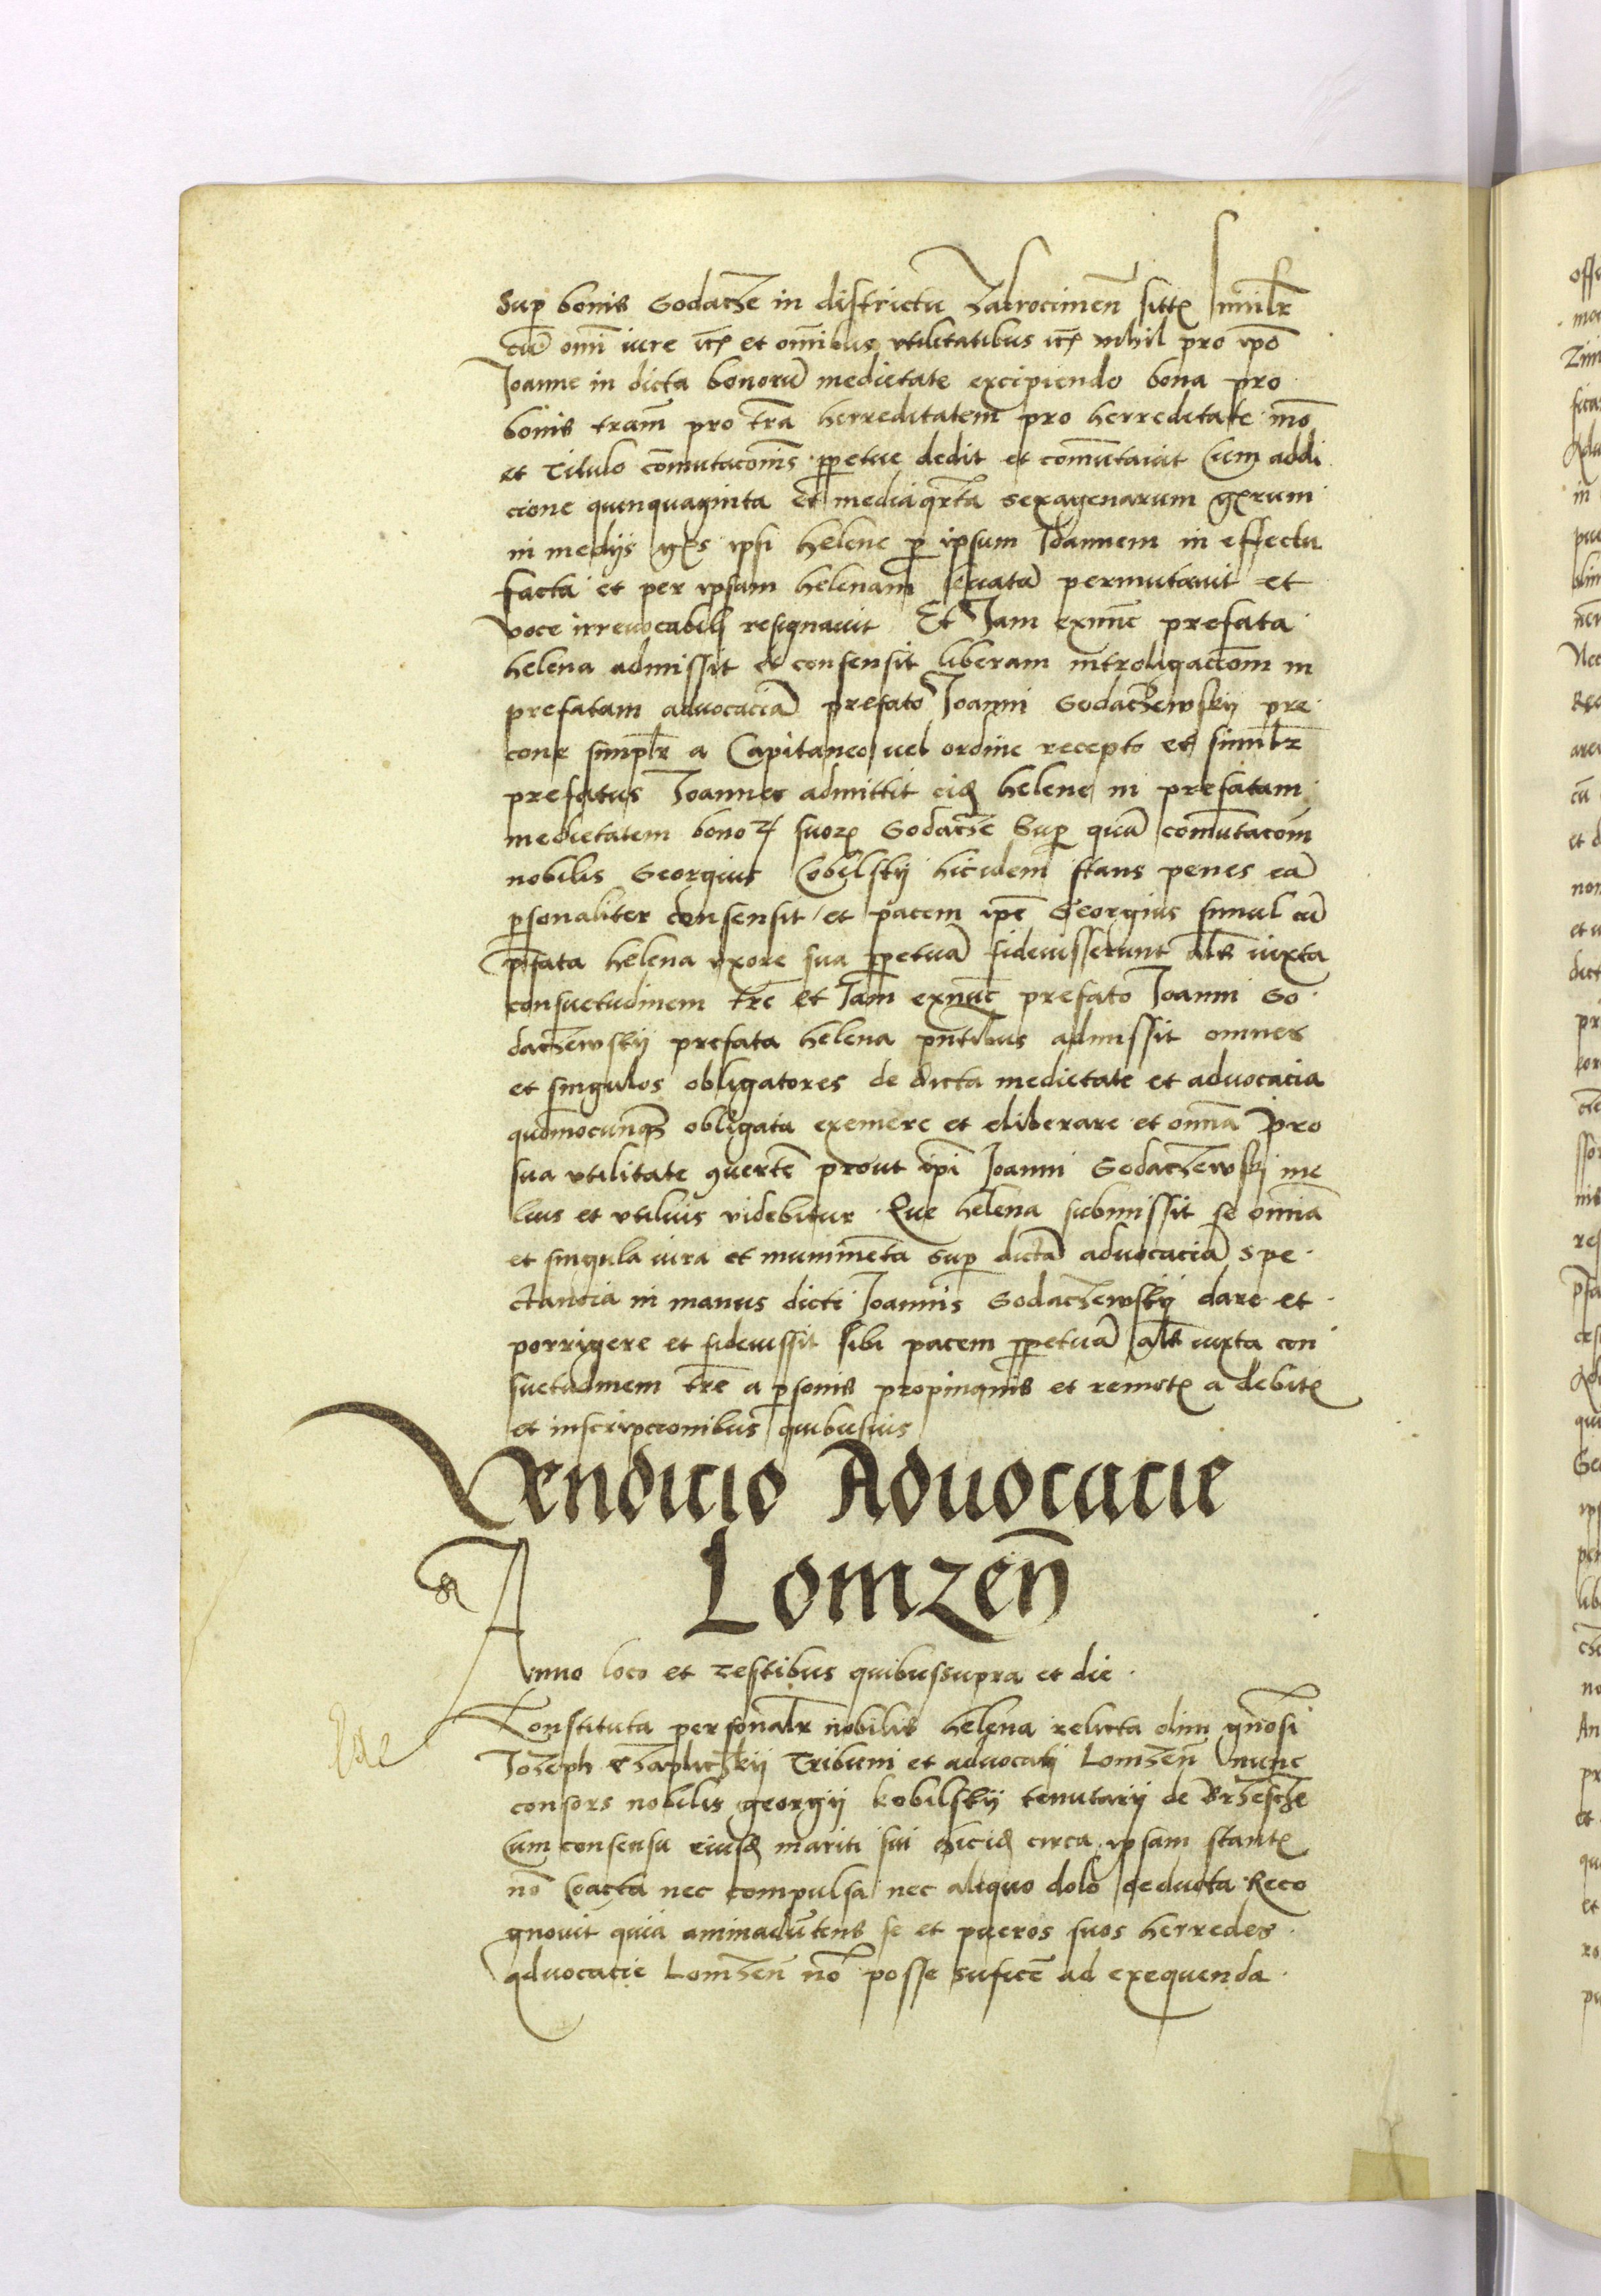 Sup bonis Godacze in districtu Zakrocimen̄ sitis similr̄
cū om̄i iure et om̄ibus vtilitatibus nihil pro ip̄o
Joanne in dicta bonorū medietate excipiendo bona pro
bonis tram̄ pro tra herreditatem pro herreditate mō
et Titulo cōmutacōnis ppetue dedit et comutauit Cum addi
cione qunquaginta et media qrta sexagenarum grum
in medijs grs ipsi helene p ipsum Joannem in effectu
facta et per ipsam helenam leuata permutauit et
voce irreuocabili resignauit Et Jam exnunc prefata
helena admissit et consensit liberam introligaccōm in
prefatam aduocaciā prefato Joanni Godaczewskij pre
cone simplr a Capitaneo vel ordine recepto et similr
prefatus Joannes admittit eid helene in prefatam
medietatem bonoꝝ suoꝝ Godacze Sup quā comutacōm
nobilis Georgius Cobilskij hicidem stans penes eā
psonaliter consensit et pacem ip̄e Georgius simul cū
p̄fata helena vxore sua ppetuā fideiusserunt als iuxta
consuetudinem tre et Jam exnūc prefato Joanni Go
daczewskij prefata helena pn̄tibus admissit omnes
et singulos obligatores de dicta medietate et aduocacia
quōmocunqȝ obligata exemere et eliberare et om̄ia pro
sua vtilitate ꝯuertē prout ip̄i Joanni Godaczewski me
lius et vtilius videbitur Que helena submissit se om̄ia
et singula iura et munimēta sup dictā aduocaciā spe
ctancia in manus dicti Joannis Godaczewskij dare et
porrigere et fideiussit sibi pacem ppetuā als iuxta con
suetudinem tre a psonis propinquis et remotis a debitis
et inscripcionibus quibusuis
Vendicio Aduocacie
Lomzen̄
Anno loco et Testibus quibussupra et die
Constituta personalr nobilis helena relicta olim gn̄osi
Jozeph Chapliczkij Tribuni et aduocati Lomzen̄ nunc
consors nobilis georgij kobilskij tenutarij de Brzescze
Cum consensu eiusd mariti sui hicid circa ipsam stantis
nō Coacta nec compulsa nec aliquo dolo seducta Reco
gnouit quia animaduertens se et pueros suos herredes
aduocacie Lomzen̄ nō posse suficē ad exequenda